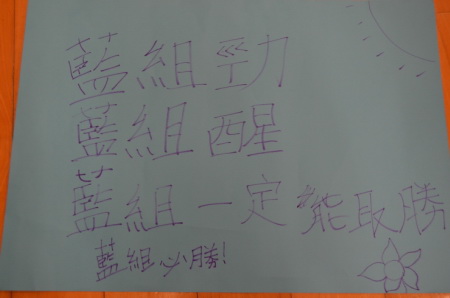 藍組勁
藍組醒
藍組一定能取勝
藍組必勝!